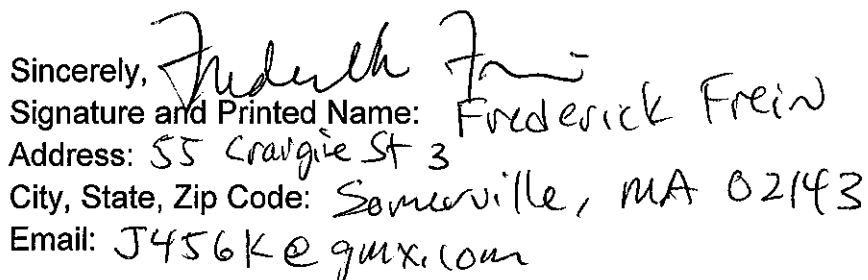 Sincerely, Frederick
Signature and Printed Name: Frederick Frein
Address: 55 Craigie St 3
City, State, Zip Code: Somerville, MA 02143
Email: J456K@gmx.com